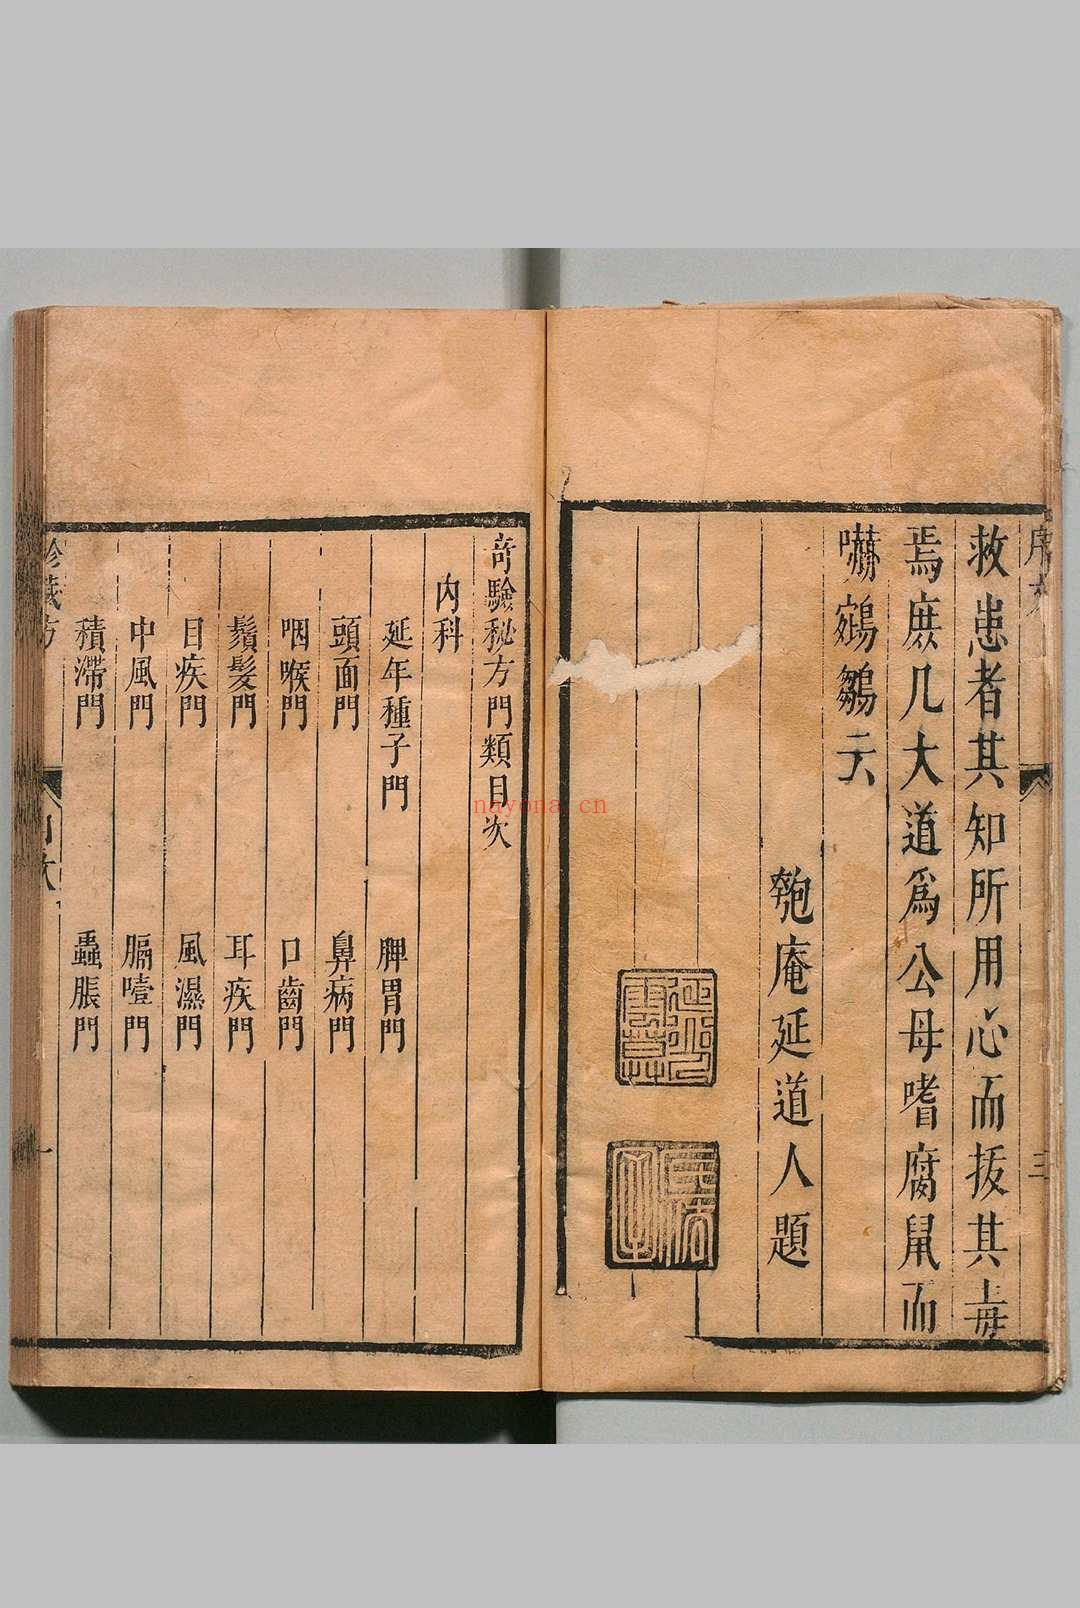 救患者其知所用心而拔其毒
焉庶几大道爲公毋嗜腐鼠而
嚇鵷鶵云
匏庵延道人題
三
奇驗秘方門類目次
内科
延年種子門 脾胃門
頭面門 鼻病門
咽喉門 口齒門
鬚髮門 耳疾門
目疾門 風濕門
中風門 膈噎門
積滯門 蟲脹門
目次 一
nayona.cn